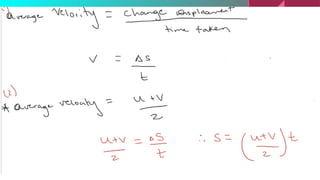 average velocity = change displacement
time taken
v = Δs
t
(2)
* average velocity = u+v
2
u+v = Δs ∴ s = (u+v) t
2 t 2